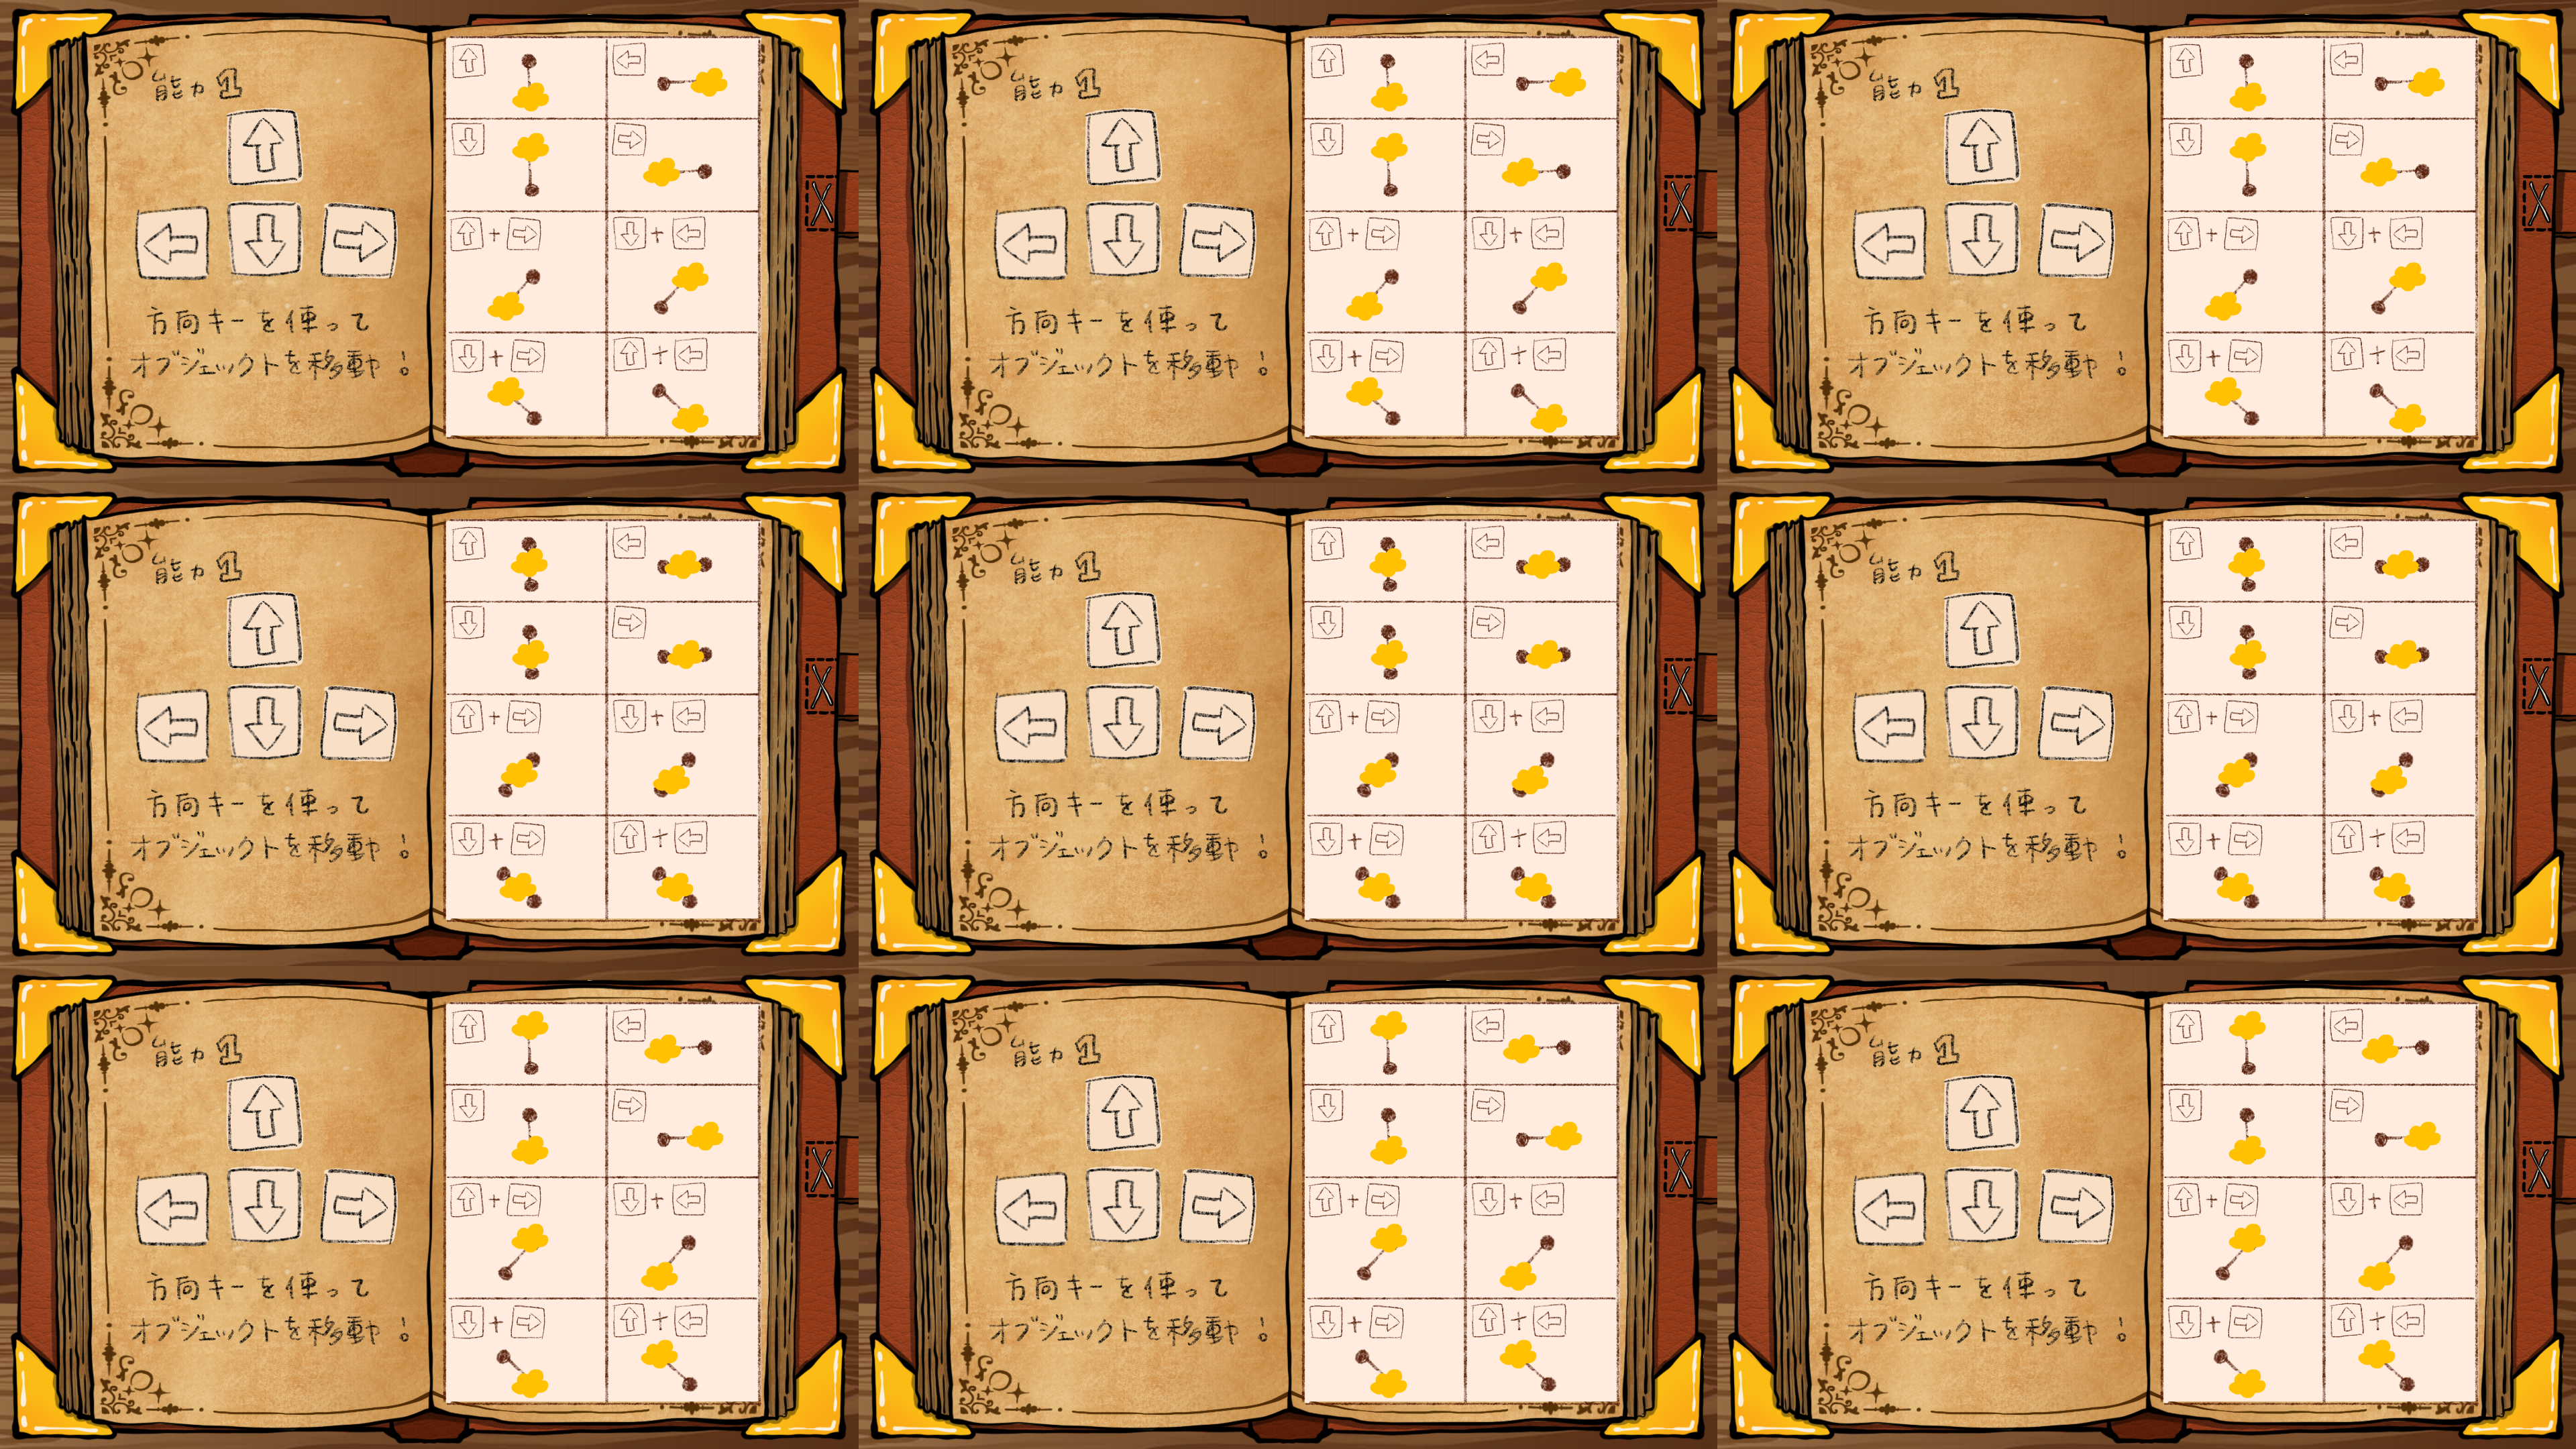 能力1
方向キーを使って
オブジェクトを移動!
能力1
方向キーを使って
オブジェクトを移動!
能力1
方向キーを使って
オブジェクトを移動!
能力1
方向キーを使って
オブジェクトを移動!
能力1
方向キーを使って
オブジェクトを移動!
能力1
方向キーを使って
オブジェクトを移動!
能力1
方向キーを使って
オブジェクトを移動!
能力1
方向キーを使って
オブジェクトを移動!
能力1
方向キーを使って
オブジェクトを移動!